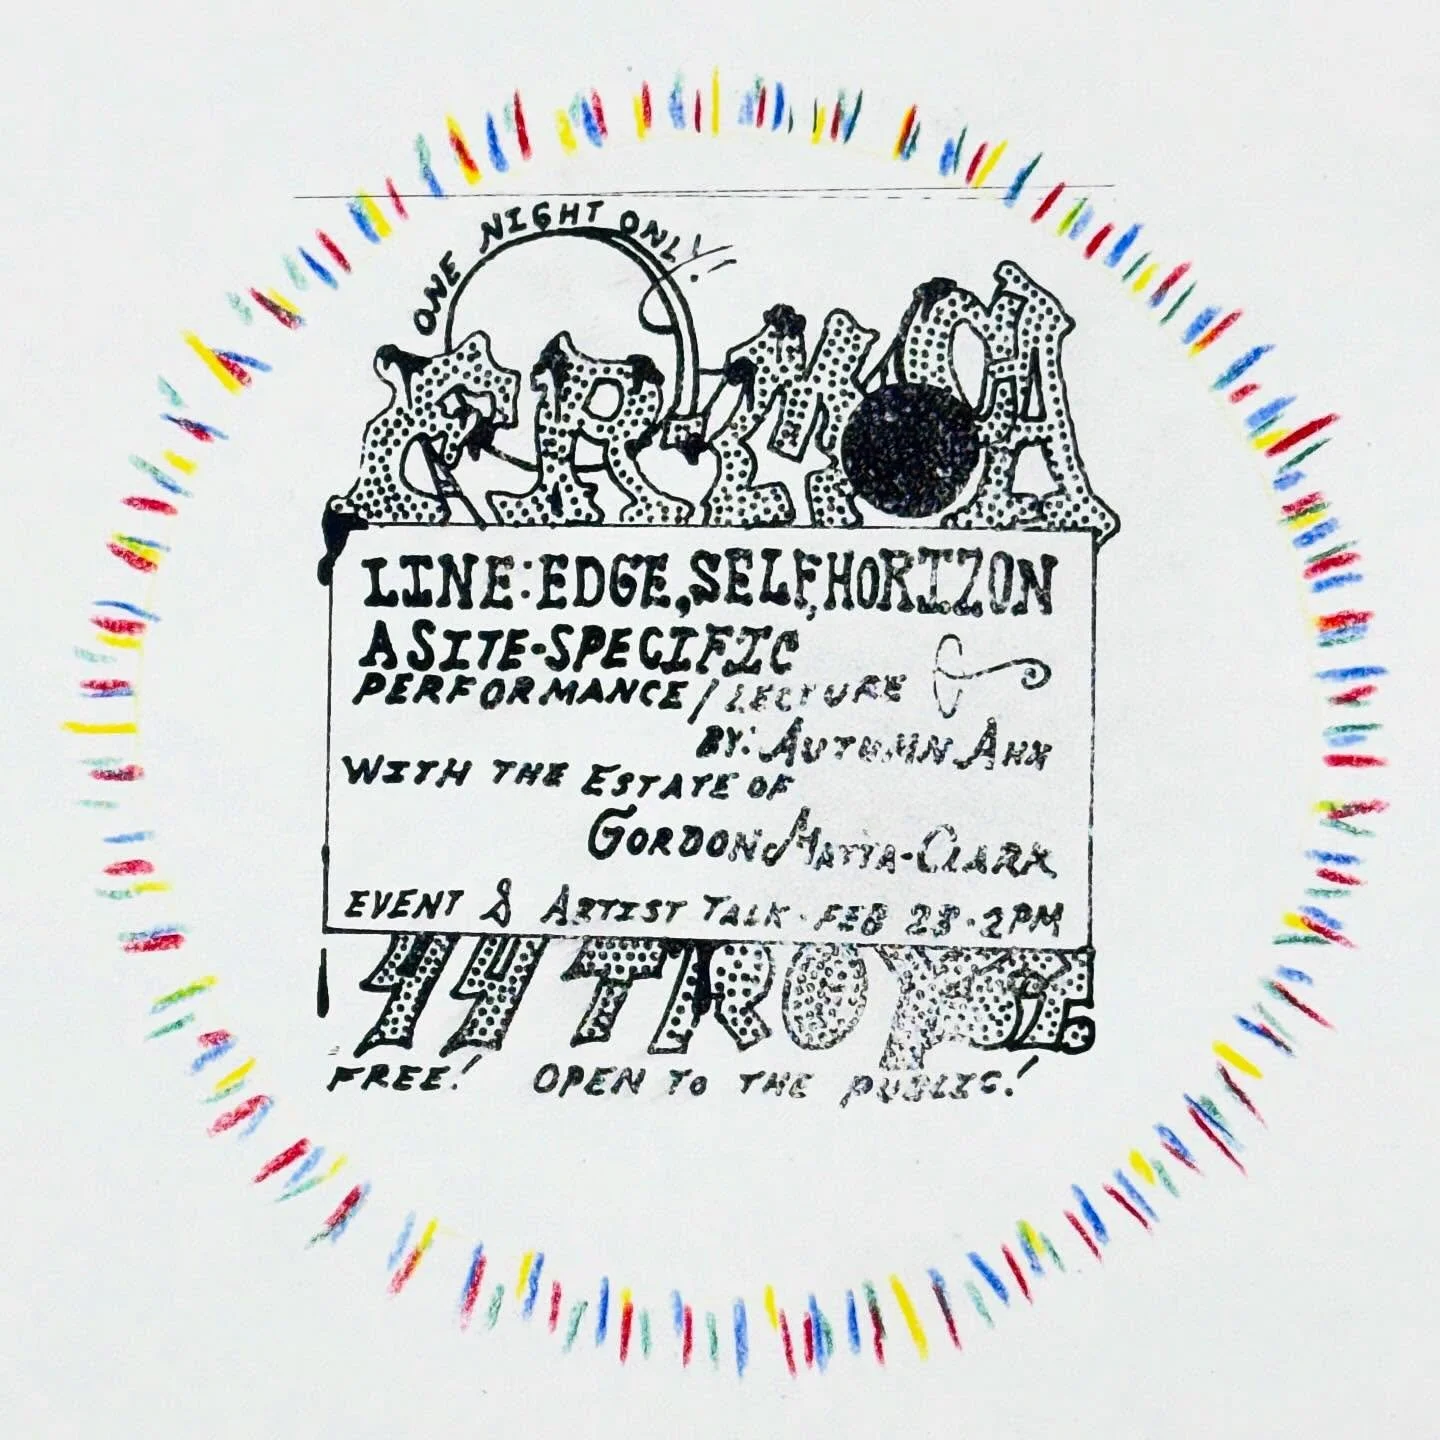 ONE NIGHT ONLY!
FRMOCA
LINE: EDGE, SELF, HORIZON
A SITE-SPECIFIC
PERFORMANCE / LECTURE
BY: AUTUMN AHN
WITH THE ESTATE OF
GORDON MATTA-CLARK
EVENT & ARTIST TALK · FEB 28 · 2PM
44 TROY ST.
FREE! OPEN TO THE PUBLIC!